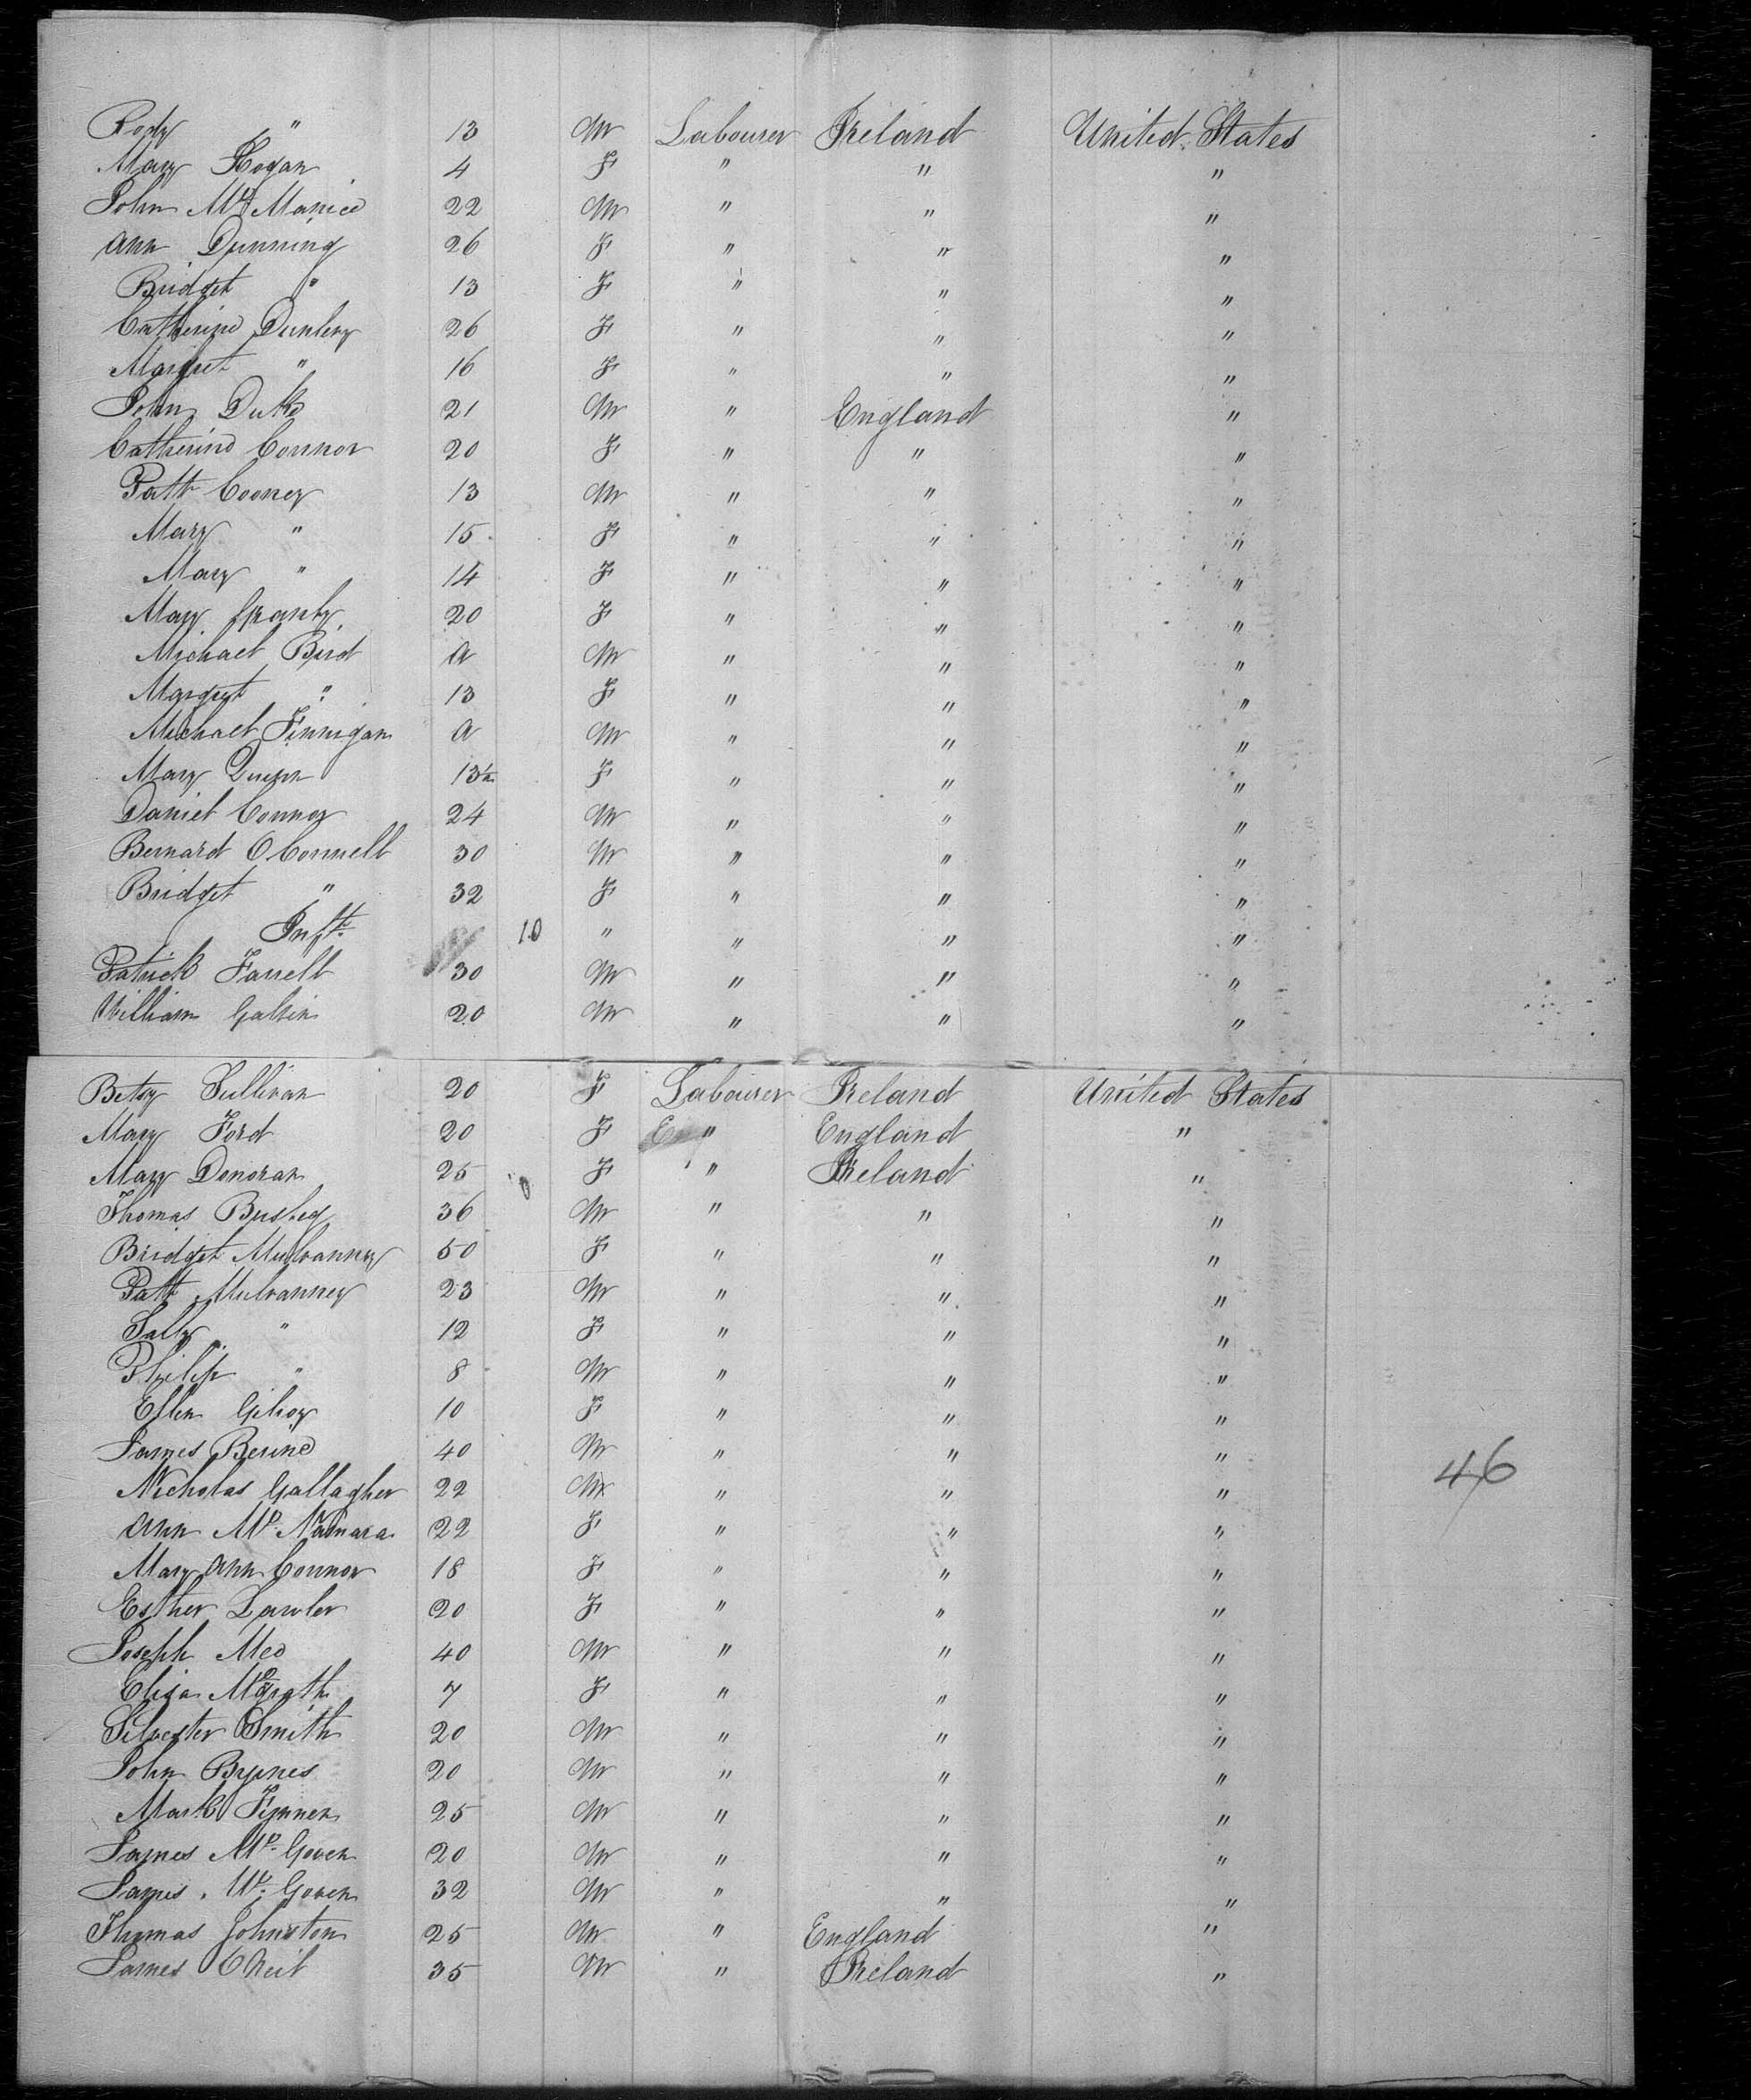 Rody " 13 M Labourer Ireland United States
Mary Hogan 4 F " " "
John Mc Manice 22 M " " "
Ann Dunning 26 F " " "
Bridget " 13 F " " "
Catherine Dunlevy 26 F " " "
Margret " 16 F " " "
John Duke 21 M " England "
Catherine Connor 20 F " " "
Patt Cooney 13 M " " "
Mary " 15 F " " "
Mary " 14 F " " "
Mary 20 F " " "
Michael Bird a M " " "
Margret " 13 F " " "
Michael Finnigan a M " " "
Mary Quinn 13½ F " " "
Daniel Connor 24 M " " "
Bernard O Connell 30 M " " "
Bridget " 32 F " " "
Inft. 10 " " " "
Patrick Farrell 30 M " " "
William Galvin 20 M " " "
Betsy Sullivan 20 F Labourer Ireland United States
Mary Ford 20 F " England "
Mary Donovan 25 F " Ireland "
Thomas Busted 36 M " " "
Bridget Mulvanney 50 F " " "
Patt Mulvanney 23 M " " "
Sally " 12 F " " "
Philip " 8 M " " "
Ellen Gilroy 10 F " " "
James Beirne 40 M " " "
Nicholas Gallagher 22 M " " " 46
Ann Mc Namara 22 F " " "
Mary Ann Connor 18 F " " "
Esther Lawler 20 F " " "
Joseph Meo 40 M " " "
Eliza McGrath 7 F " " "
Silvester Smith 20 M " " "
John Byrnes 20 M " " "
Mark Finnen 25 M " " "
James Mc Goven 20 M " " "
James Mc Goven 32 M " " "
Thomas Johnston 25 M " England "
James O Neil 35 M " Ireland "